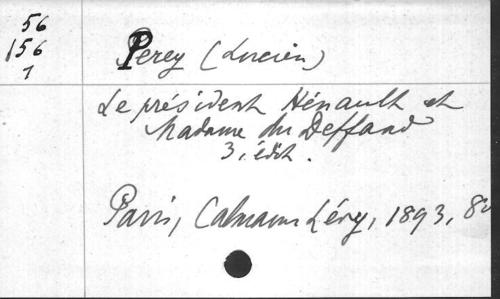 56
156
1
Perey (Lucien)
Le président Hénault et
Madame du Deffand
3. édit.
Paris, Calmann Lévy, 1893, 8º